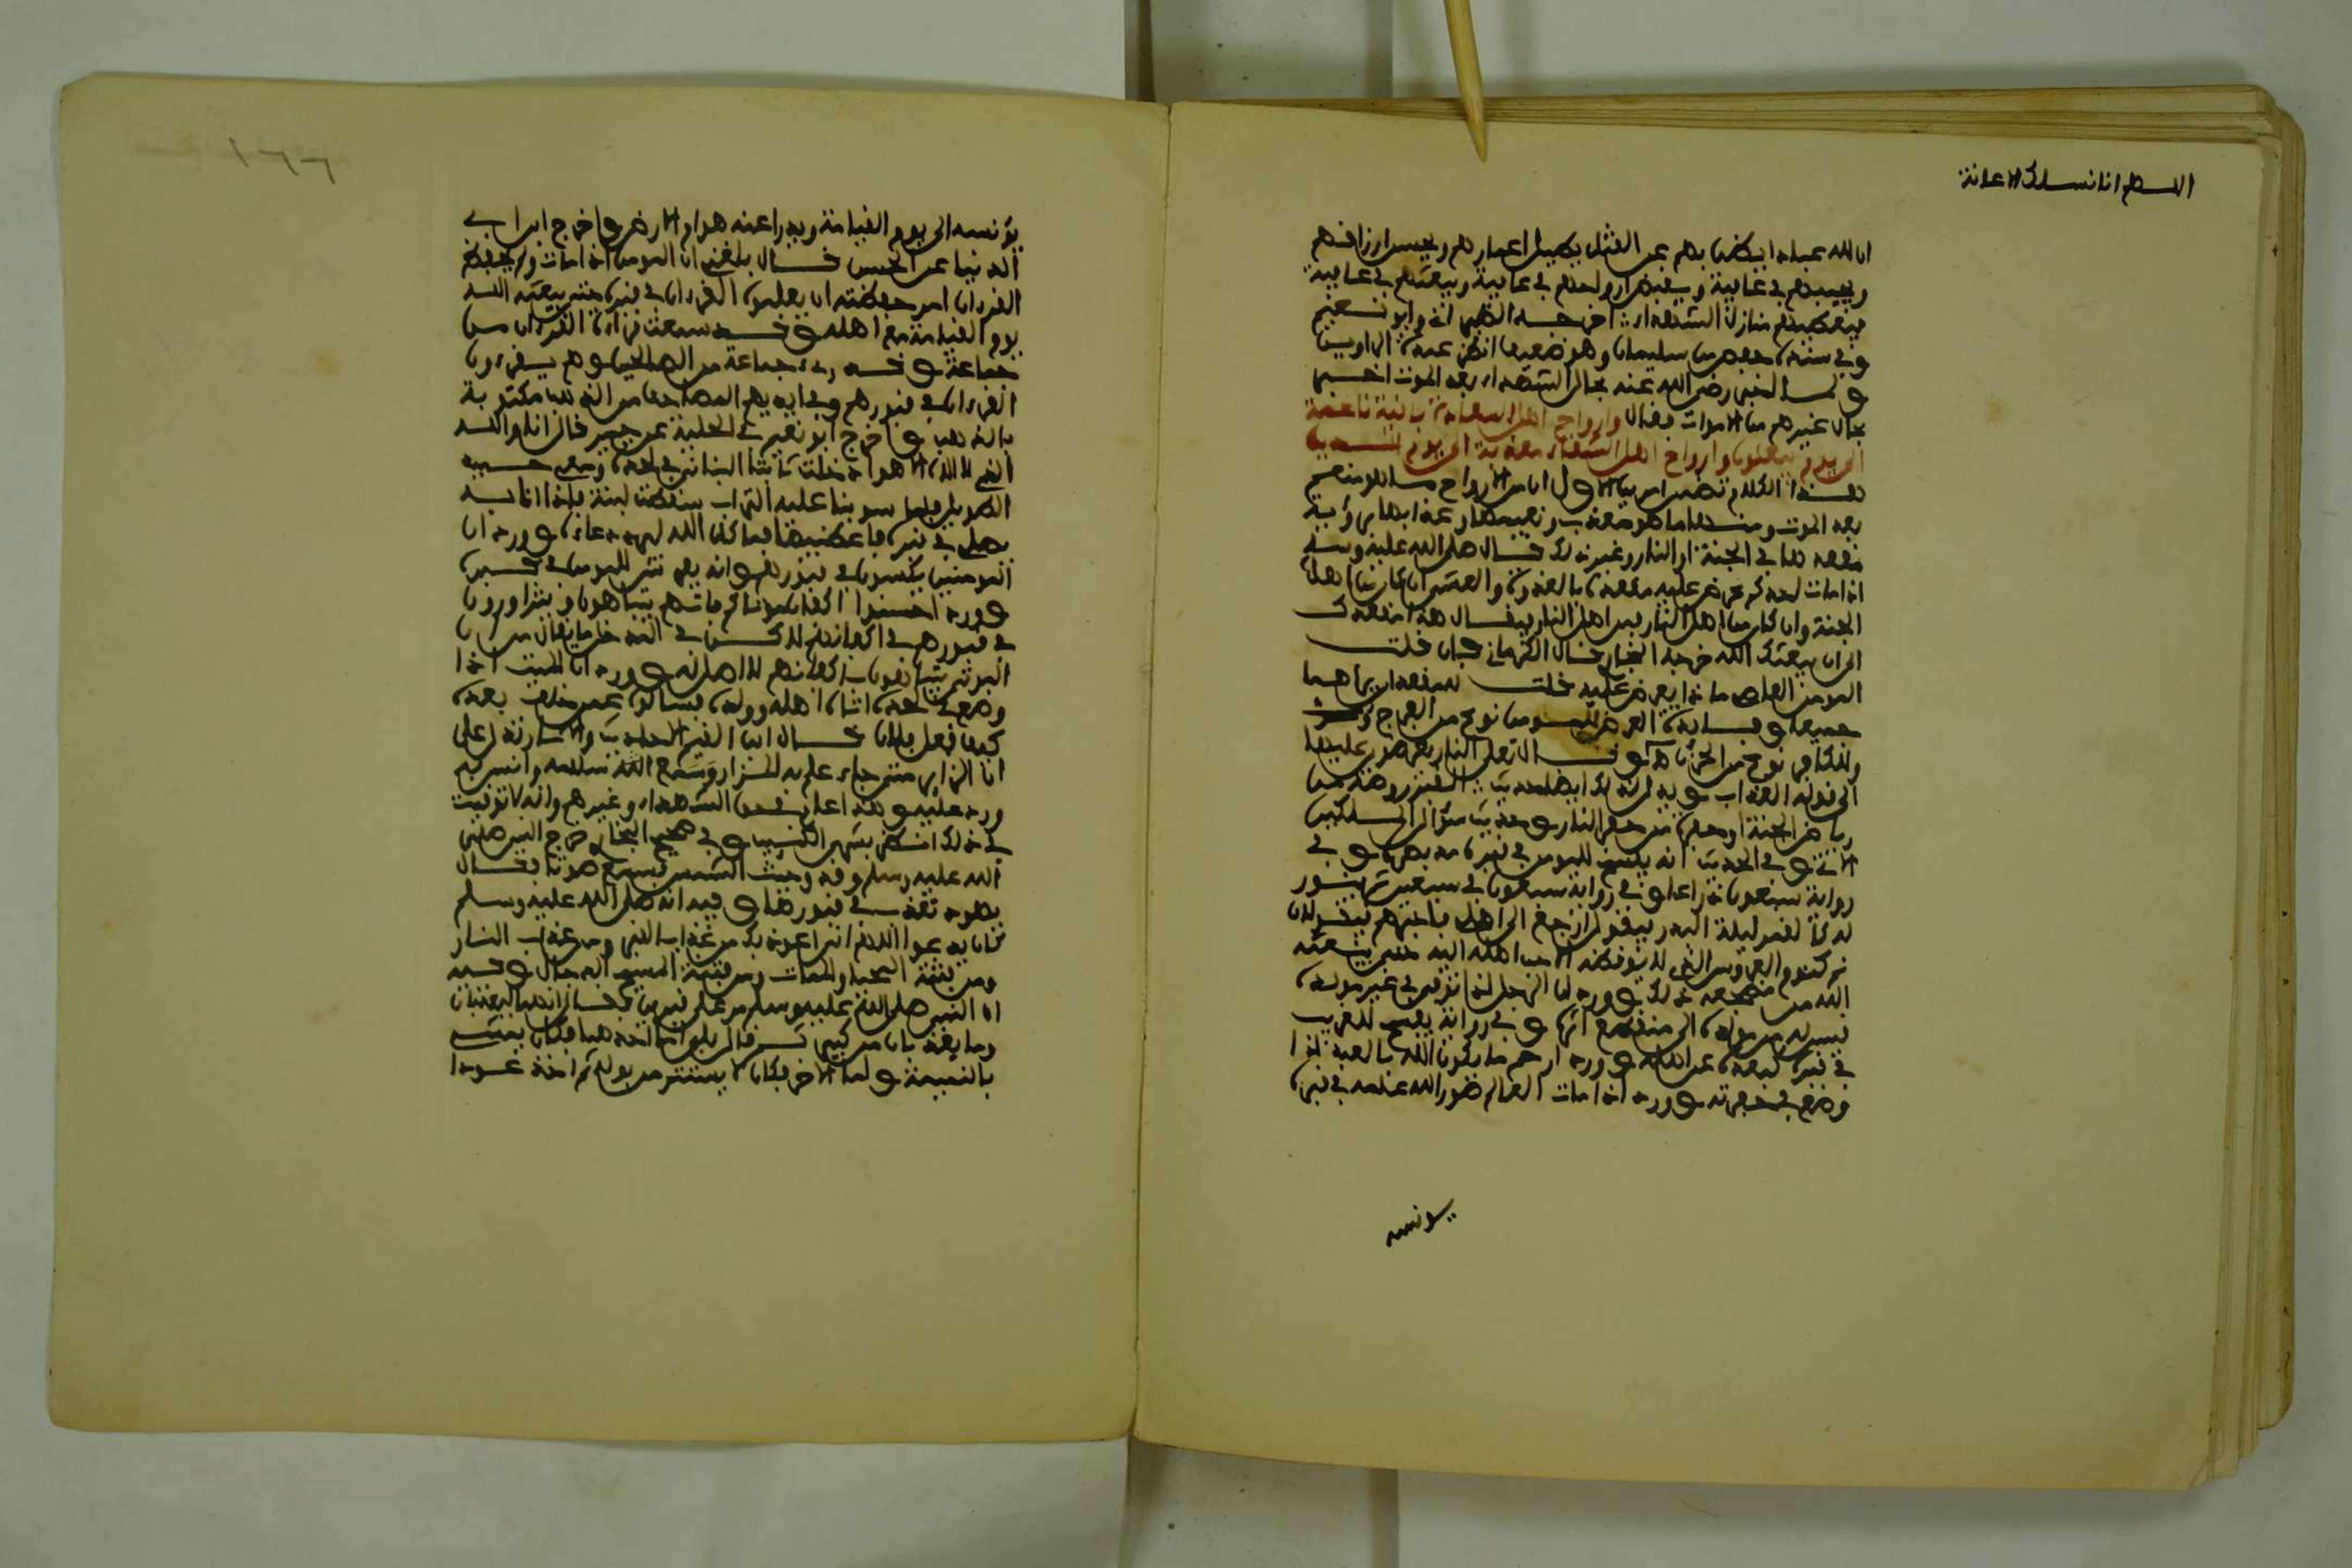 اللهم انا نسلك الاعانة
ان لله عبادا يضن بهم عن القتل يطيل اعمارهم ويحسن ارزاقهم
ويحييهم في عافية ويقبض ارواحهم في عافية ويبعثهم في عافية
فيعطيهم منازل الشهداء اخرجه الطبراني وابو نعيم
وفي سنده حفص بن سليمان وهو ضعيف
رضي الله عنه بحال الشهداء بعد الموت اخبر
بحال غيرهم من الاموات فقال وارواح اهل السعادة باقية ناعمة
الى يوم يبعثون وارواح اهل الشقاء معذبة الى يوم الدين
هذا الكلام تضمن امرين الاول ان من الارواح ما هو منعم
بعد الموت ومنها ما هو معذب ونعيمها وعذابها برؤية
مقعدها في الجنة او النار وغير ذلك قال صلى الله عليه وسلم
اذا مات احدكم عرض عليه مقعده بالغدوة والعشي ان كان من اهل
الجنة وان كان من اهل النار فمن اهل النار فيقال هذا مقعدك
الى ان يبعثك الله خرجه البخاري قال فان قلت
المومن العاصي ماذا يعرض عليه قلت مقعدان يراهما
جميعا وفائدة العرض للمومن نوع من الفرح
وللكافر نوع من الحزن قال تعلى النار يعرضون عليها
الى قوله العذاب ويدل لذلك ايضا حديث القبر روضة من
رياض الجنة او حفرة من حفر النار وحديث سؤال الملكين
الاتي وفي الحديث انه يفسح للمومن في قبره مد بصره وفي
رواية سبعون ذراعا وفي رواية سبعون في سبعين ثم ينور
له كالقمر ليلة البدر فيقول ارجع الى اهلي فاخبرهم فيقولان
نم كنوم العروس الذي لا يوقظه الا احب اهله اليه حتى يبعثه
الله من مضجعه ذلك وورد ان الرجل اذا توفي في غير مولده
قيس له من مولده الى منقطع اثره وفي رواية يفسح للغريب
في قبره كبعده عن اهله وورد ارحم ما يكون الله بالعبد اذا
وضع في حفرته وورد اذا مات العالم صور الله علمه في قبره
يونسه
١٦٦
يؤنسه الى يوم القيامة ويدرا عنه هوام الارض واخرج ابن ابي
الدنيا عن الحسن قال بلغني ان المومن اذا مات ولم يحفظ
القرءان امر حفظته ان يعلموه القرءان في قبره حتى يبعثه الله
يوم القيامة مع اهله وقد سمعت قراءة القرءان من
جماعة وقد رءى جماعة من الصالحين وهم يقرءون
القرءان في قبورهم وفي ايديهم المصاحف من الذهب مكتوبة
بالذهب واخرج ابو نعيم في الحلية عن جبير قال انا والله
الذي لا اله الا هو ادخلت ثابتا البناني في لحده ومعي حميد
الطويل فلما سوينا عليه التراب سقطت لبنة فاذا انا به
يصلي في قبره فما كان الله ليرد دعاءه وورد ان
المومنين يكسون في قبورهم وانه يفرش للمومن في قبره
وورد احسنوا اكفان موتاكم فانهم يتباهون ويتزاورون
في قبورهم في اكفانهم
وورد ان الميت اذا
وضع في لحده اتاه اهله وولده فيسألهم عمن خلف بعده
كيف فعل فلان قال ابن القيم الاحاديث والاثار تدل على
ان الزاير متى جاء علم به المزور وسمع الله سلامه وانس به
ورد عليه وهذا عام في حق الشهداء وغيرهم وانه لا توقيت
في ذلك وفي صحيح البخاري خرج النبي صلى
الله عليه وسلم وقد وجبت الشمس فسمع صوتا فقال
يهود تعذب في قبورها وفيه انه صلى الله عليه وسلم
كان يدعوا اللهم اني اعوذ بك من عذاب القبر ومن عذاب النار
ومن فتنة المحيا والممات ومن فتنة المسيح الدجال وفيه
ان النبي صلى الله عليه وسلم مر على قبرين فقال انهما ليعذبان
وما يعذبان من كبير ثم قال بلى اما احدهما فكان يمشي
بالنميمة واما الاخر فكان لا يستتر من بوله ثم اخذ عودا